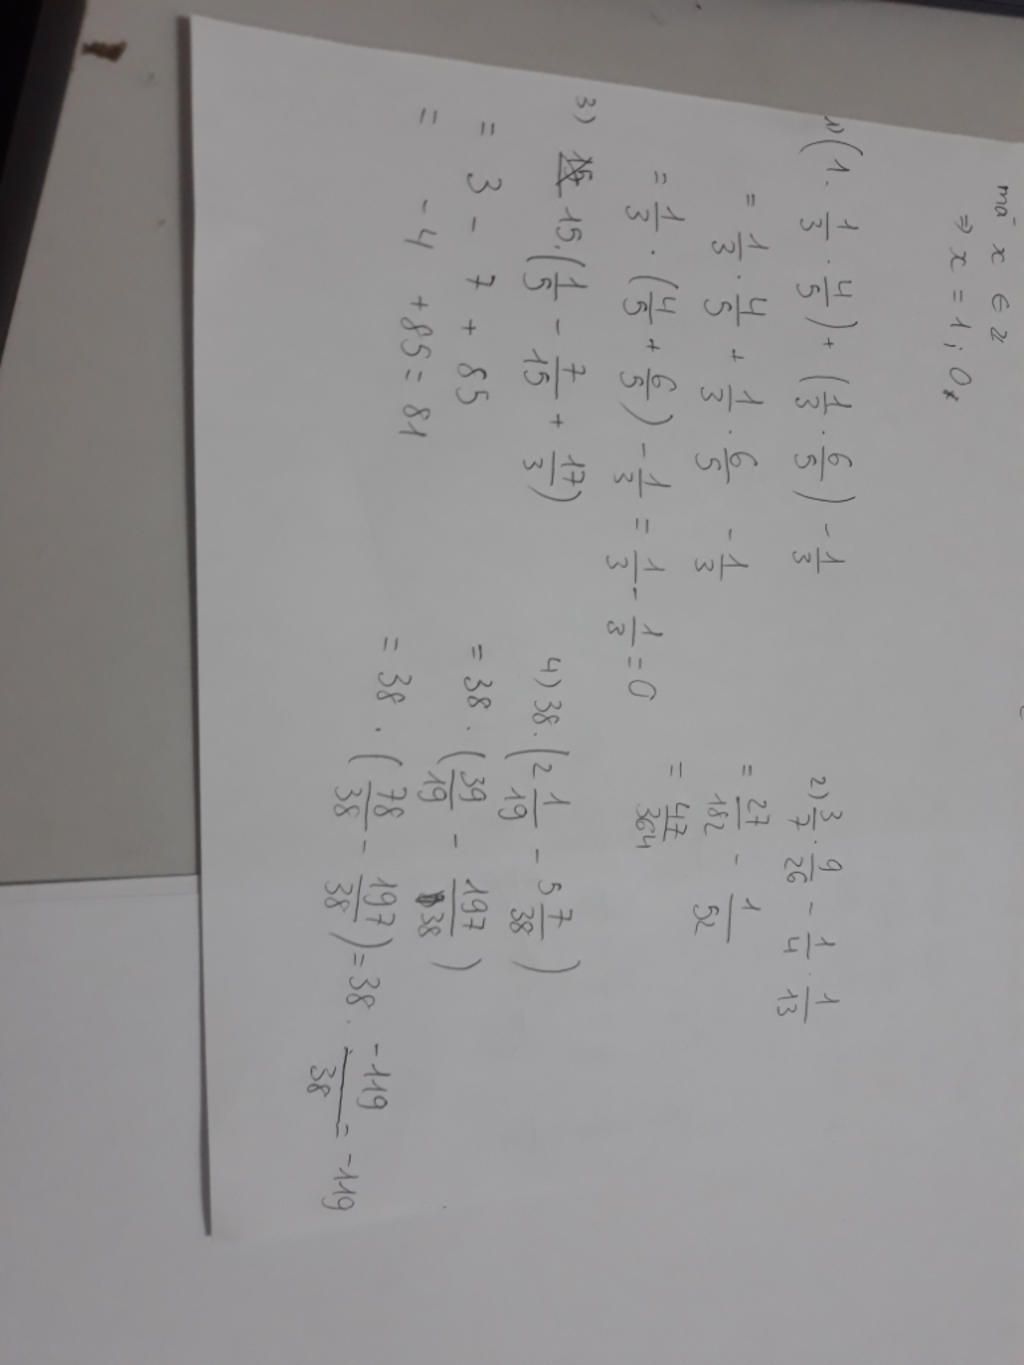 mà x ∈ Z
⇒ x = 1; 0
1) (1 . 1/3 . 4/5) + (1/3 . 6/5) - 1/3
= 1/3 . 4/5 + 1/3 . 6/5 - 1/3
= 1/3 . (4/5 + 6/5) - 1/3 = 1/3 - 1/3 = 0
2) 3/7 . 9/26 - 1/4 . 1/13
= 27/182 - 1/52
= 47/364
3) 15 . (1/5 - 7/15 + 17/3)
= 3 - 7 + 85
= -4 + 85 = 81
4) 38 . (2 1/19 - 5 7/38)
= 38 . (39/19 - 197/38)
= 38 . (78/38 - 197/38) = 38 . -119/38 = -119